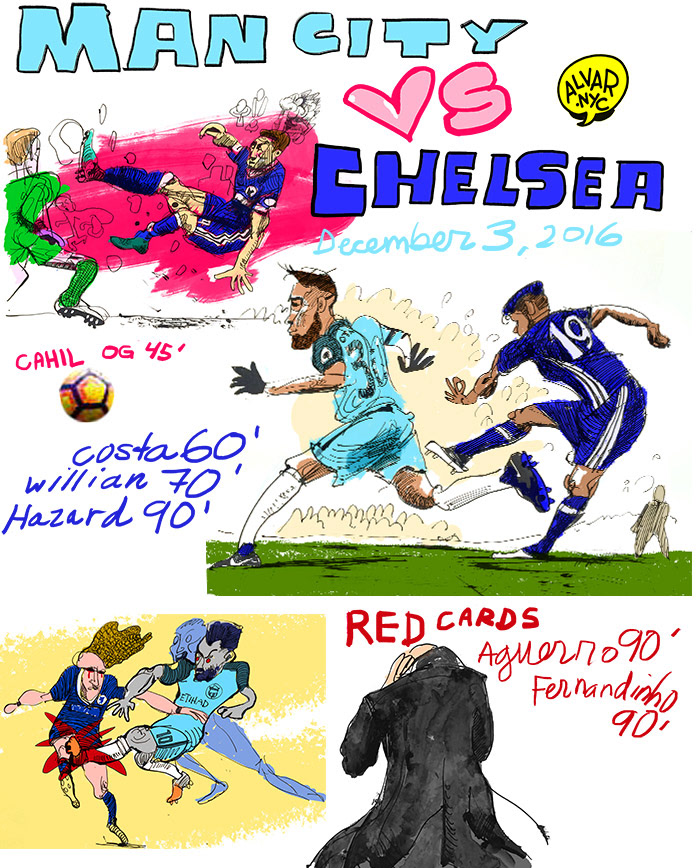 MAN CITY
VS
ALVAR
.NYC
CHELSEA
December 3, 2016
CAHIL OG 45'
19
30
costa 60'
willian 70'
Hazard 90'
RED CARDS
Aguerro 90'
Fernandinho
90'
ETIHAD
10